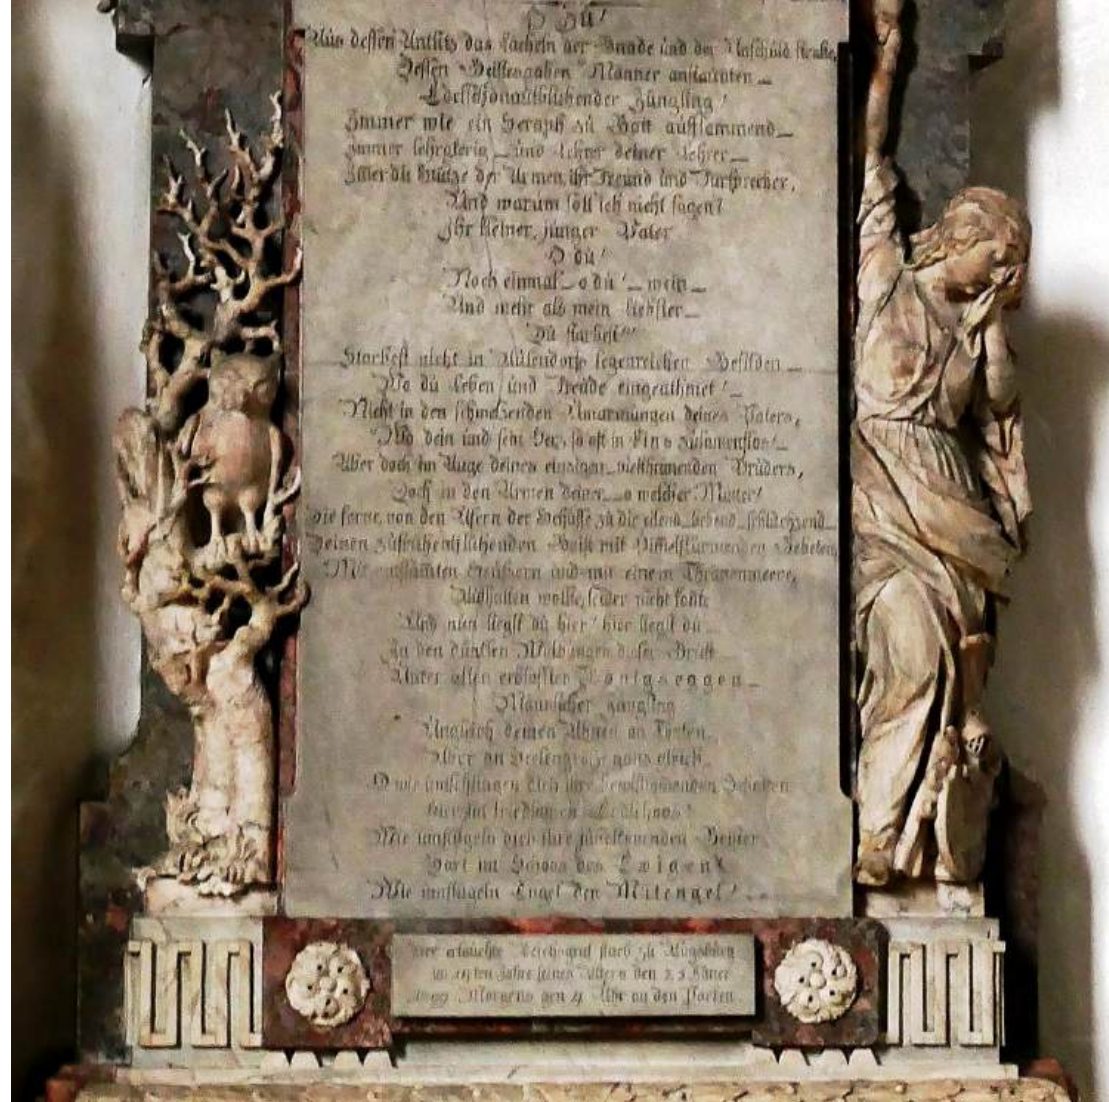 O Du!
Aus dessen Antlitz das Lächeln der Gnade und der Unschuld stralte,
Dessen Geistesgaben Männer anstaunten —
Edelschönaufblühender Jüngling!
Immer wie ein Seraph zu Gott aufflammend —
Immer lehrgierig — und Lehrer deiner Lehrer —
Immer die Stütze der Armen, ihr Freund und Fürsprecher,
Und warum soll ich nicht sagen?
Ihr kleiner, junger Vater
O du!
Noch einmal — o du! — mein —
Und mehr als mein liebster —
Du starbest!!!
Starbest nicht in Aulendorfs segenreichen Gefilden —
Wo du Leben und Freude eingeathmet! —
Nicht in den schmelzenden Umarmungen deines Vaters,
Wo dein und sein Herz so oft in Eins zusamenfloss! —
Aber doch im Auge deines einzigen, vielthränenden Bruders,
Doch in den Armen deiner — o welcher Mutter!
Die ferne von den Ufern der Schüsse zu dir eilend, liebend, schluchzend —
Deinen Geist mit Himmelstürmenden Gebeten,
Mit Seufzern und mit einem Thränenmeere,
Aufhalten wollte, leider nicht konte
Und nun liegst du hier! hier liegst du —
In den dunklen Wölbungen dieser Gruft
Unter allen erblassten Königseggen —
Männlicher Jüngling
Ungleich deinen Ahnen an Thaten,
Aber an Seelengröse ganz gleich,
O wie umschlingen dich ihre Schatten
hier im friedlichen
Wie umflügeln dich ihre Geister
Dort im Schoos des Ewigen!
Wie umflügeln Engel den Mitengel!
Der erlauchte Reichsgraf starb zu Augsburg
im Jahre seines Alters den Jäner
Morgens gen 4 Uhr an den